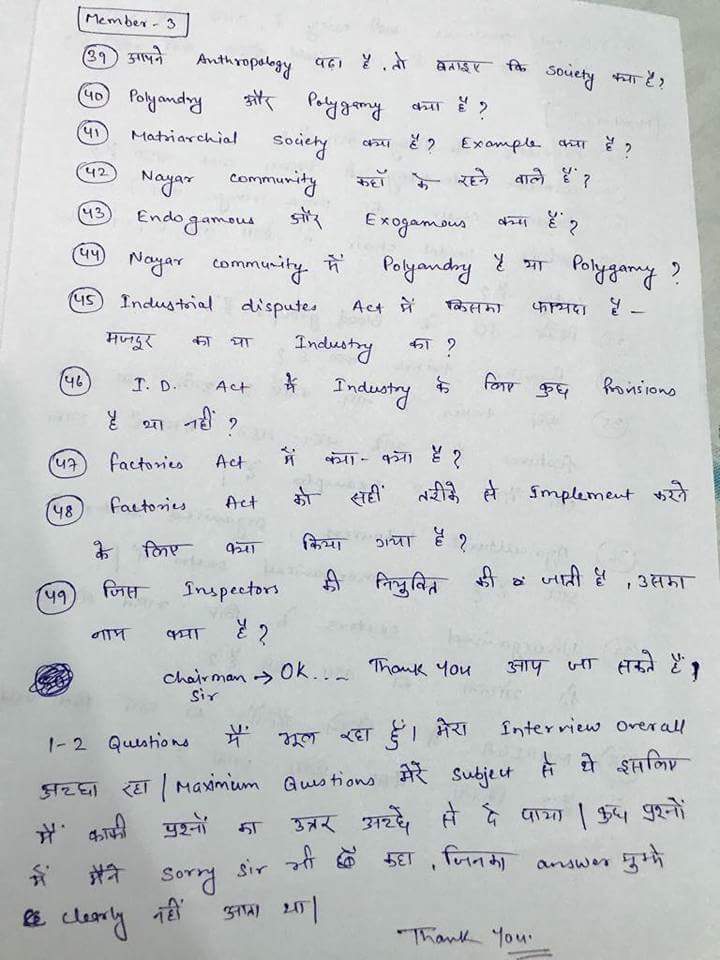 Member - 3
39 आपने Anthropology पढ़ा है, तो बताइए कि society क्या है?
40 Polyandry और Polygamy क्या है?
41 Matriarchial society क्या है? Example क्या है?
42 Nayar community कहाँ के रहने वाले हैं?
43 Endogamous और Exogamous क्या हैं?
44 Nayar community में Polyandry है या Polygamy?
45 Industrial disputes Act में किसका फायदा है -
मजदूर का या Industry का?
46 I.D. Act में Industry के लिए कुछ Provisions
है या नहीं?
47 Factories Act में क्या-क्या है?
48 Factories Act को सही तरीके से Implement करने
के लिए क्या किया गया है?
49 जिस Inspectors की नियुक्ति की जाती है, उसका
नाम क्या है?
Chairman → OK... Thank You आप जा सकते हैं,
Sir
1-2 Questions मैं भूल रहा हूँ। मेरा Interview overall
अच्छा रहा | Maximium Qustions मेरे Subject से थे इसलिए
मैं काफी प्रश्नों का उत्तर अच्छे से दे पाया | कुछ प्रश्नों
में मैंने Sorry Sir भी कहा, जिनका answer मुझे
clearly नहीं आता था|
Thank You.